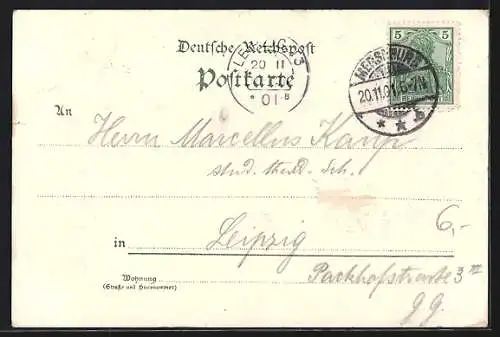 5 5
Deutsche Reichspost
LEIPZIG 3
20 11
01
Postkarte
MERSEBURG
20.11.01. 6-7N.
* * b
An
Herrn Marcellus
stud.
in Leipzig
6,-
Wohnung
(Straße und Hausnummer)
Packhofstrasse 3 III